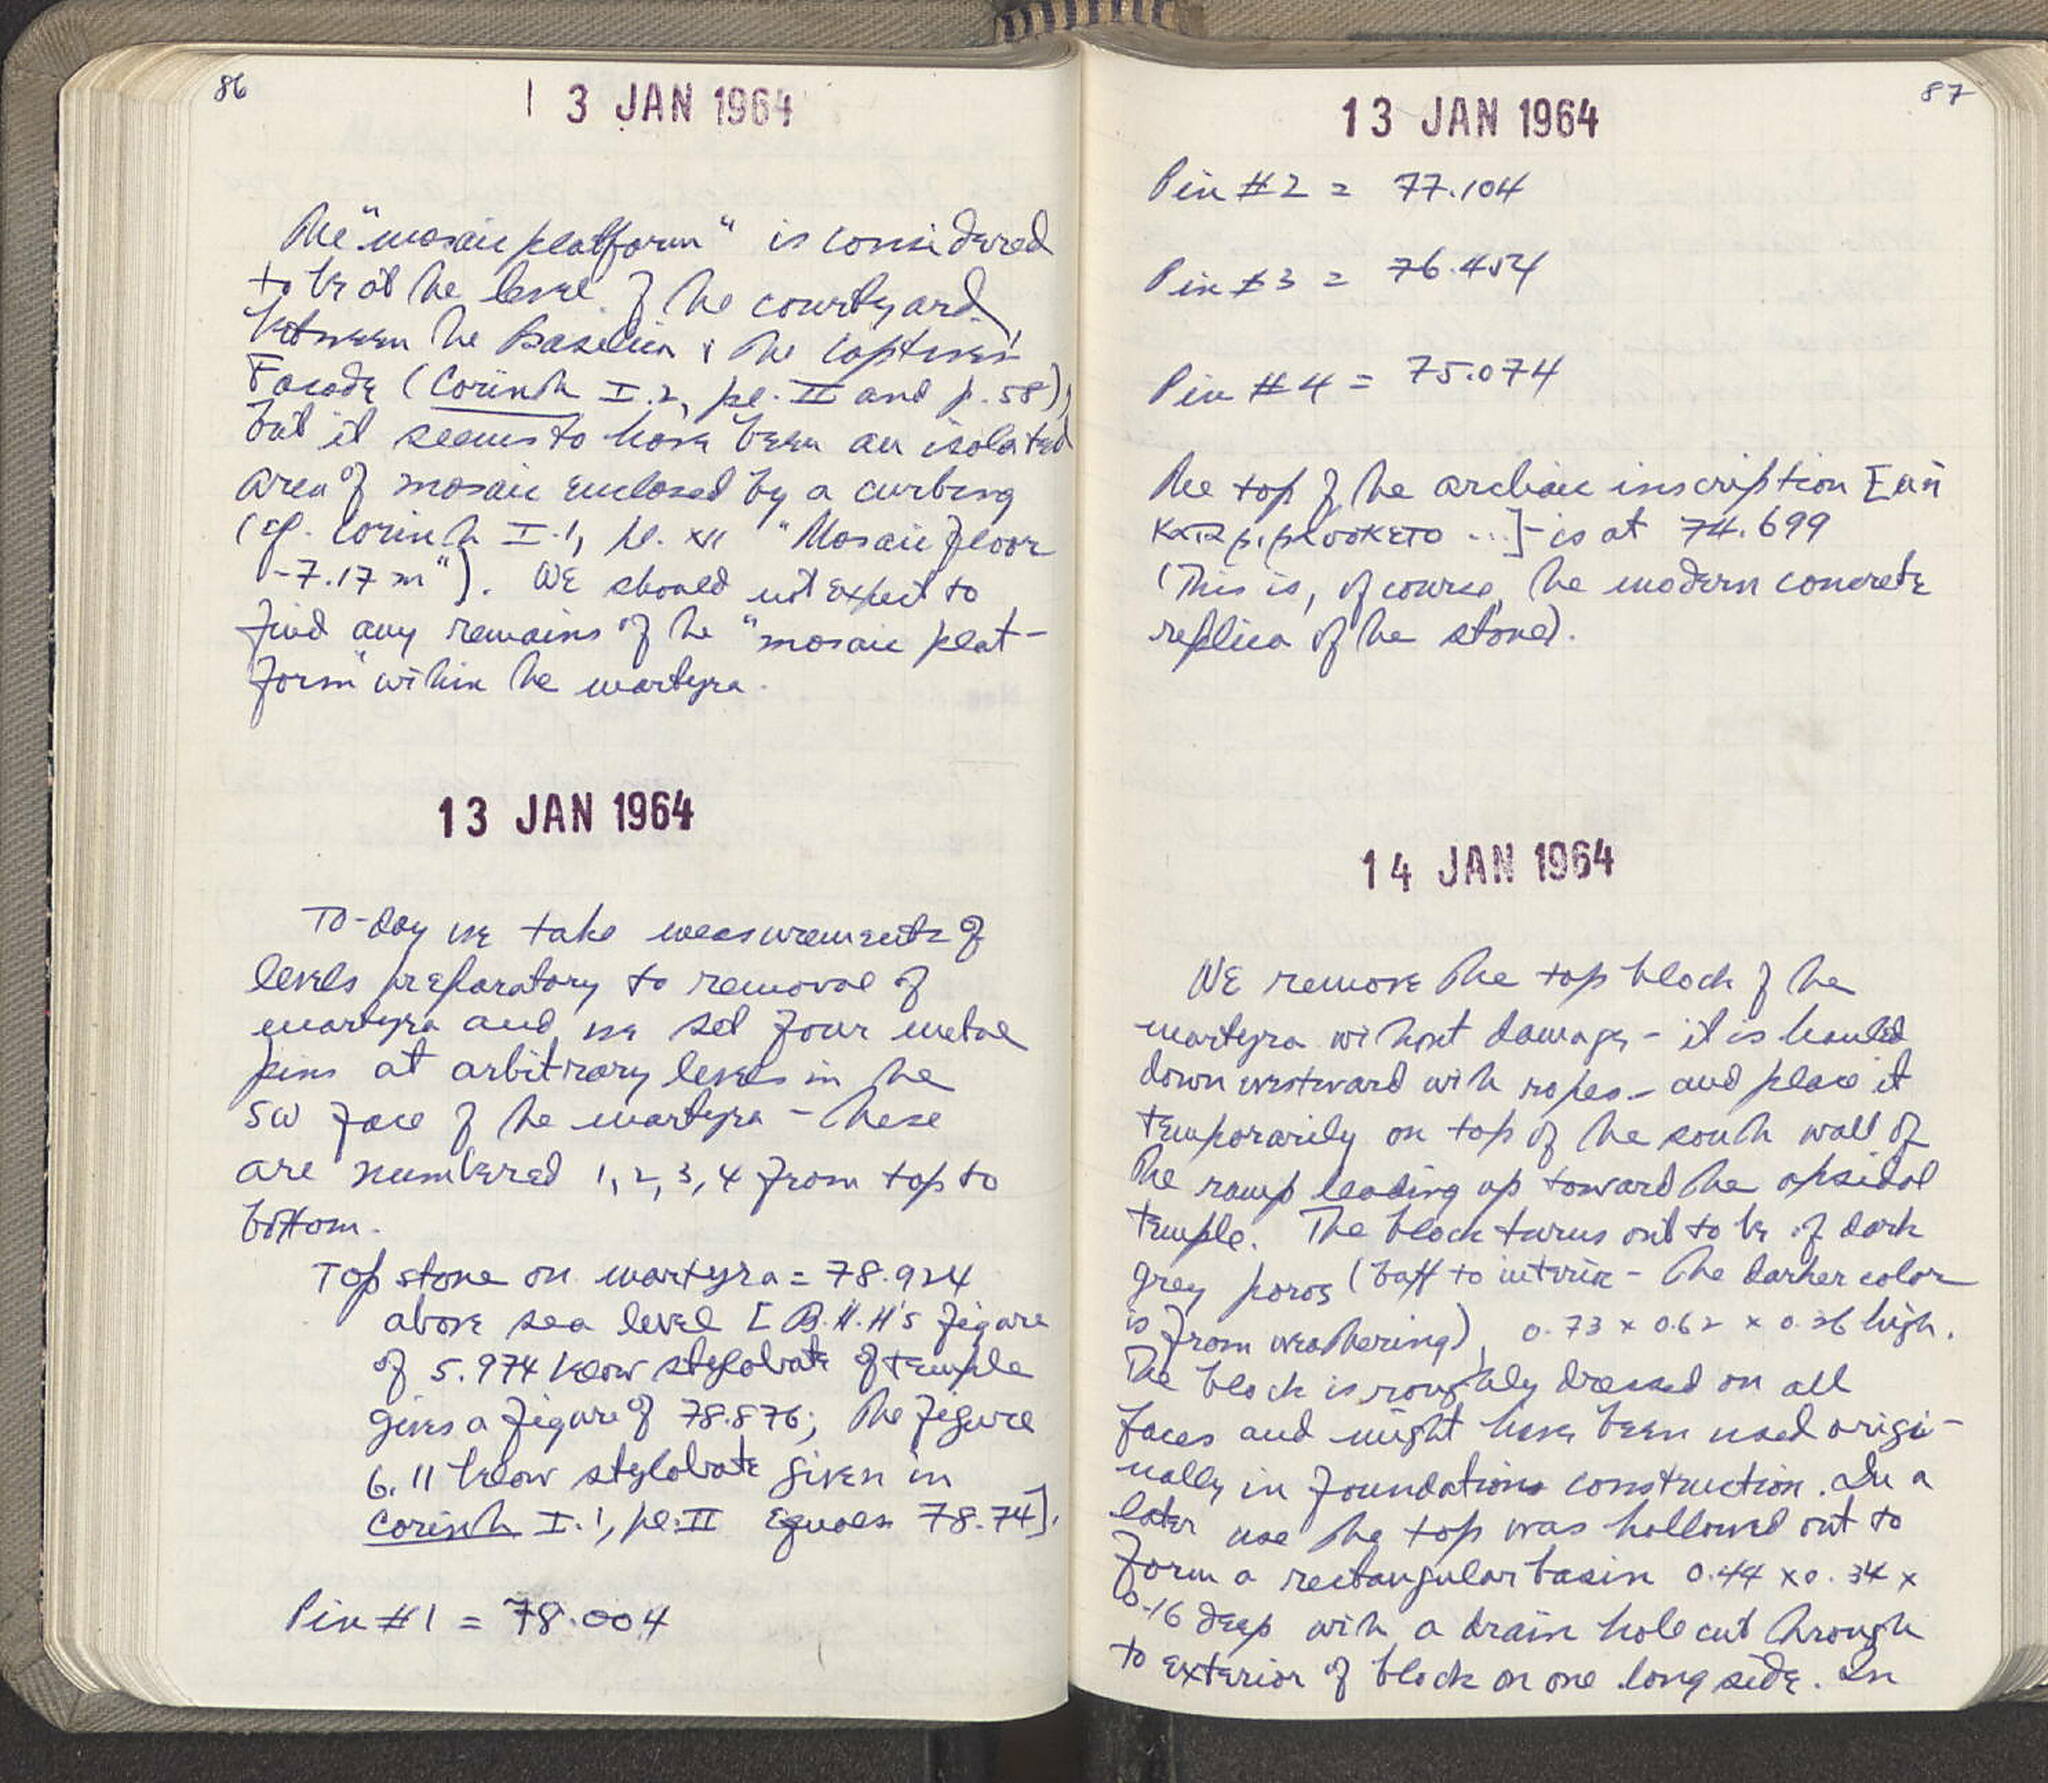 86
13 JAN 1964
The "mosaic platform" is considered
to be at the level of the courtyard
between the Basilica & the Captives'
Facade (Corinth I.2, pl. II and p. 58),
but it seems to have been an isolated
area of mosaic enclosed by a curbing
(cf. Corinth I.1, pl. XII "Mosaic floor
-7.17 m"). We should not expect to
find any remains of the "mosaic plat-
form" within the martyra.
13 JAN 1964
To-day we take measurements of
levels preparatory to removal of
martyra and we set four metal
pins at arbitrary levels in the
SW face of the martyra - these
are numbered 1, 2, 3, 4 from top to
bottom.
Top stone on martyra = 78.924
above sea level [B.H.H's figure
of 5.974 below stylobate of temple
gives a figure of 78.876; the figure
6.11 below stylobate given in
Corinth I.1, pl. II equals 78.74].
Pin #1 = 78.004
87
13 JAN 1964
Pin #2 = 77.104
Pin #3 = 76.454
Pin #4 = 75.074
The top of the archaic inscription
...] - is at 74.699
(This is, of course, the modern concrete
replica of the stone).
14 JAN 1964
We remove the top block of the
martyra without damage - it is hauled
down westward with ropes - and place it
temporarily on top of the south wall of
the ramp leading up toward the apsidal
temple. The block turns out to be of dark
grey poros (buff to interior - the darker color
is from weathering), 0.73 x 0.62 x 0.36 high.
The block is roughly dressed on all
faces and might have been used origi-
nally in foundations construction. In a
later use the top was hollowed out to
form a rectangular basin 0.44 x 0.34 x
0.16 deep with a drain hole cut through
to exterior of block on one long side. In